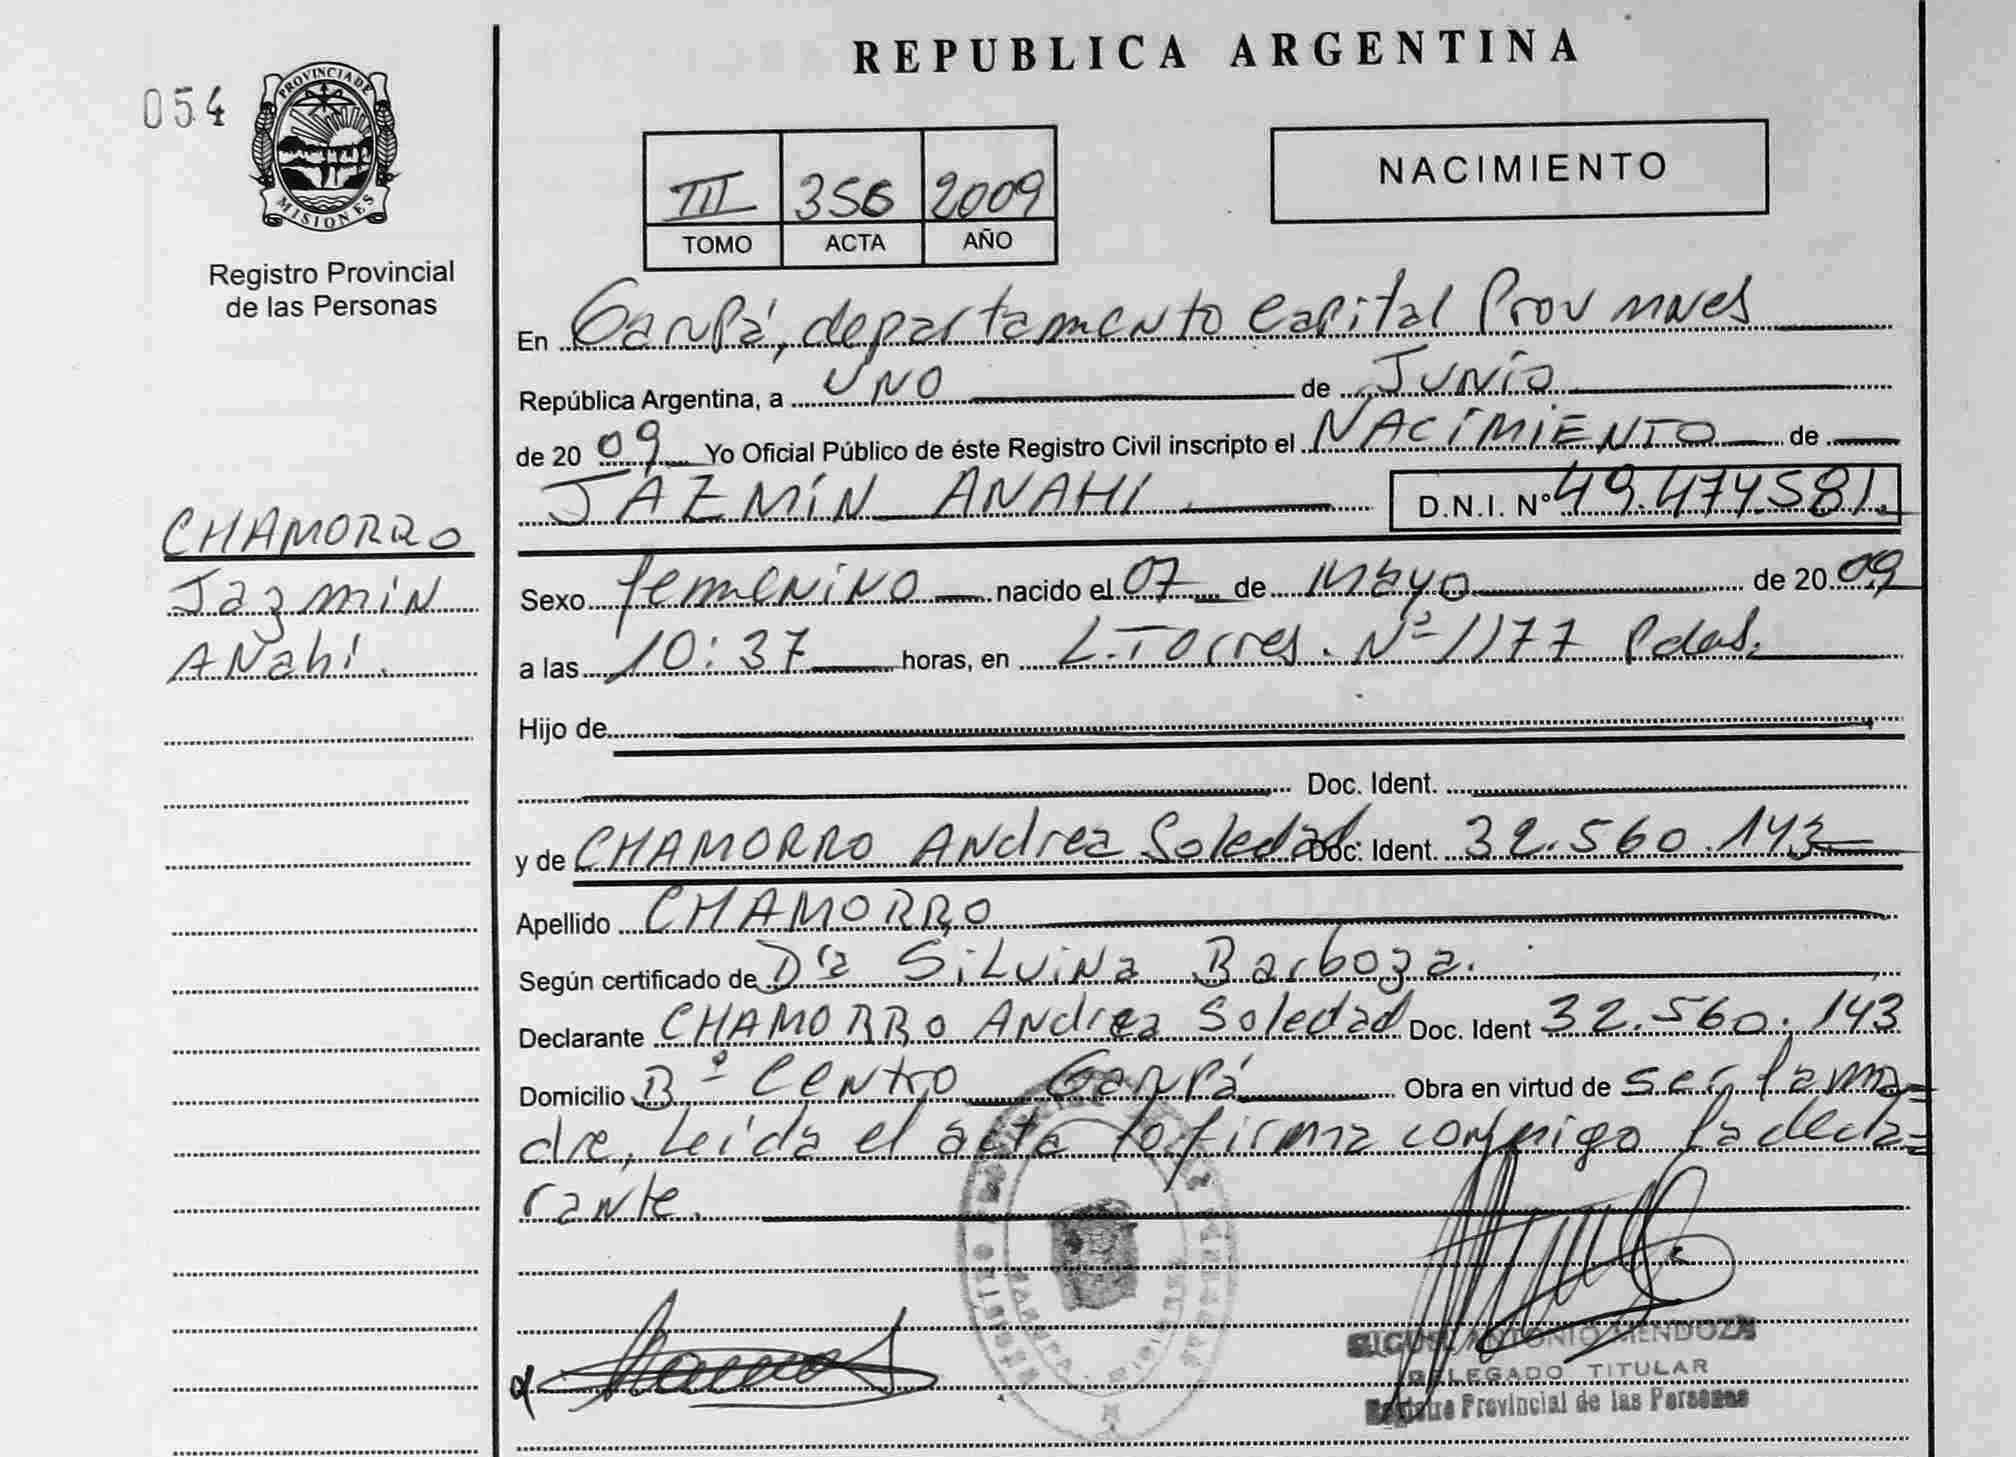 REPUBLICA ARGENTINA
054
PROVINCIA DE
MISIONES
Registro Provincial
de las Personas
III 356 2009
TOMO ACTA AÑO
NACIMIENTO
En Garupá, departamento Capital Prov Mnes
República Argentina, a UNO de Junio
de 2009 Yo Oficial Público de éste Registro Civil inscripto el NACIMIENTO de
JAZMIN ANAHI D.N.I. Nº 49.474.581.
CHAMORRO
Jazmin
Anahi.
Sexo femenino nacido el 07 de Mayo de 2009
a las 10:37 horas, en L. Torres. Nº 1177 Pdas.
Hijo de
Doc. Ident.
y de CHAMORRO Andrea Soledad Doc. Ident. 32.560.143
Apellido CHAMORRO
Según certificado de Dra Silvina Barboza.
Declarante CHAMORRO Andrea Soledad Doc. Ident 32.560.143
Domicilio Bº Centro Garupá Obra en virtud de ser la ma=
dre, Leida el acta lo firma conmigo la decla=
rante.
ANTONIO MENDOZA
DELEGADO TITULAR
Registro Provincial de las Personas